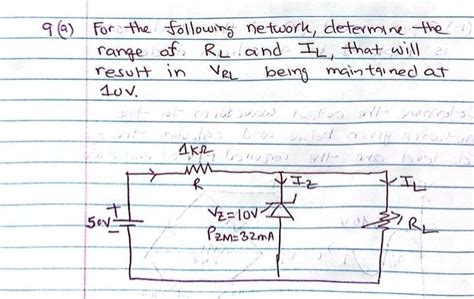 9(a) For the following network, determine the
range of RL and IL, that will
result in VRL being maintained at
10V.
1KΩ
R
IZ
IL
50V
+
-
VZ=10V
PZM=32mA
RL